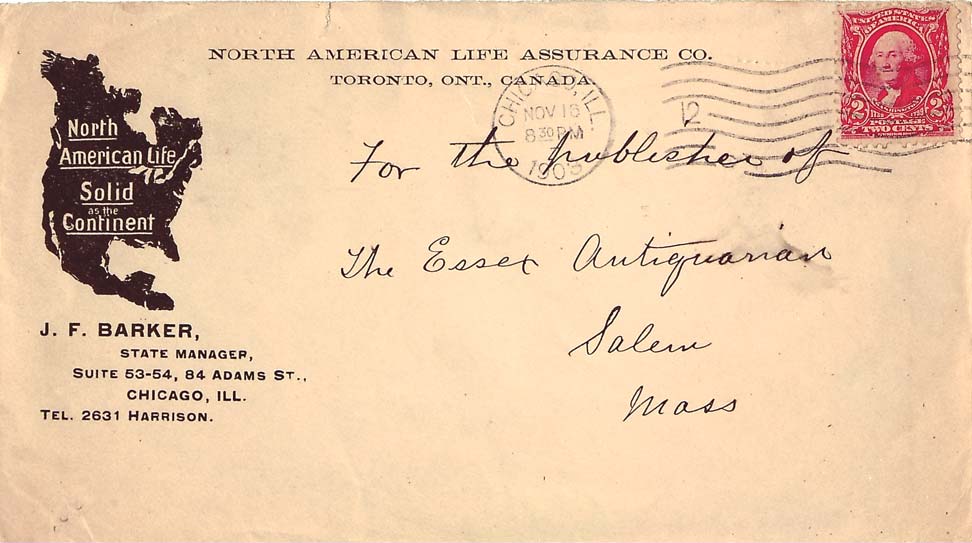 NORTH AMERICAN LIFE ASSURANCE CO.
TORONTO, ONT., CANADA.
North
American Life
Solid
as the
Continent
J. F. BARKER,
STATE MANAGER,
SUITE 53-54, 84 ADAMS ST.,
CHICAGO, ILL.
TEL. 2631 HARRISON.
CHICAGO, ILL.
NOV 16
8 30 PM
1903
12
UNITED STATES
OF AMERICA
WASHINGTON
2 2
POSTAGE
TWO CENTS
For the publisher of
The Essex Antiquarian
Salem
Mass